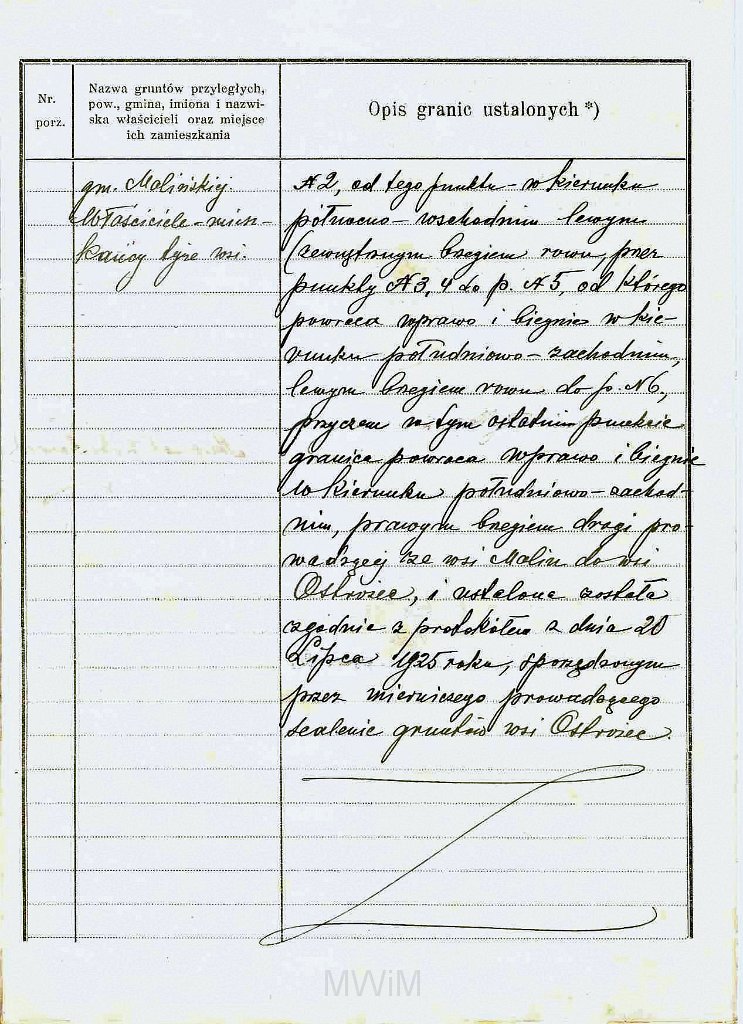 Nr.
porz.
Nazwa gruntów przyległych,
pow., gmina, imiona i nazwi-
ska właścicieli oraz miejsce
ich zamieszkania
Opis granic ustalonych *)
gm. Malińskiej.
Właściciele - miesz-
kańcy tyże wsi.
N2, od tego punktu - w kierunku
północno - wschodnim lewym
(zewnętrznym brzegiem rowu, przez
punkty N3, 4 do p. N5, od którego
powraca wprawo i biegnie w kie-
runku południowo - zachodnim,
lewym brzegiem rowu do p. N6,
przyczem w tym ostatnim punkcie
granica powraca wprawo i biegnie
w kierunku południowo - zachod-
nim, prawym brzegiem drogi pro-
wadzącej ze wsi Malin do wsi
Ostrożec, i ustalona została
zgodnie z protokółem z dnia 20
Lipca 1925 roku, sporządzonym
przez mierniczego prowadzącego
scalenie gruntów wsi Ostrożec.
MWiM